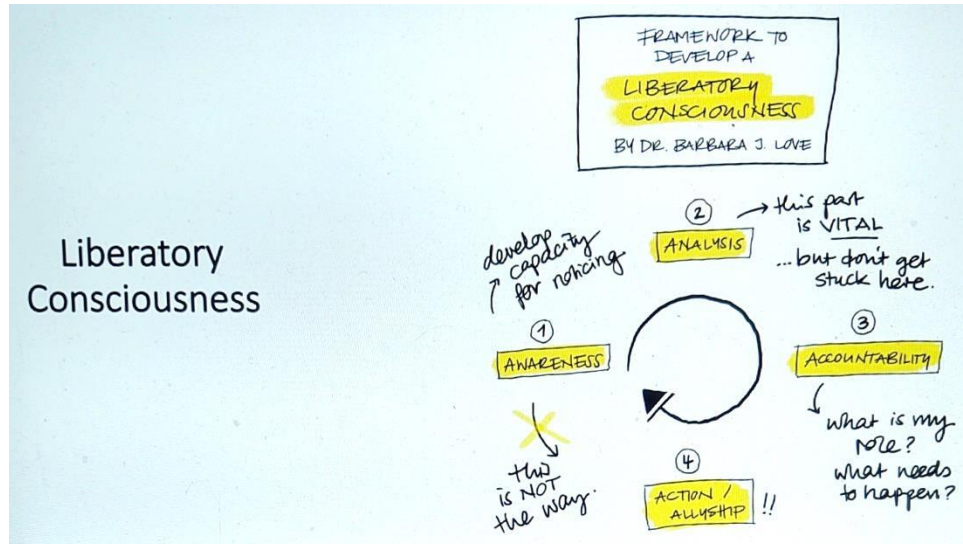 Liberatory
Consciousness
FRAMEWORK TO
DEVELOP A
LIBERATORY
CONSCIOUSNESS
BY DR. BARBARA J. LOVE
develop
capacity
for noticing
1
AWARENESS
this
is NOT
the way.
2
ANALYSIS
this part
is VITAL
...but don't get
stuck here.
3
ACCOUNTABILITY
what is my
role?
what needs
to happen?
4
ACTION /
ALLYSHIP !!